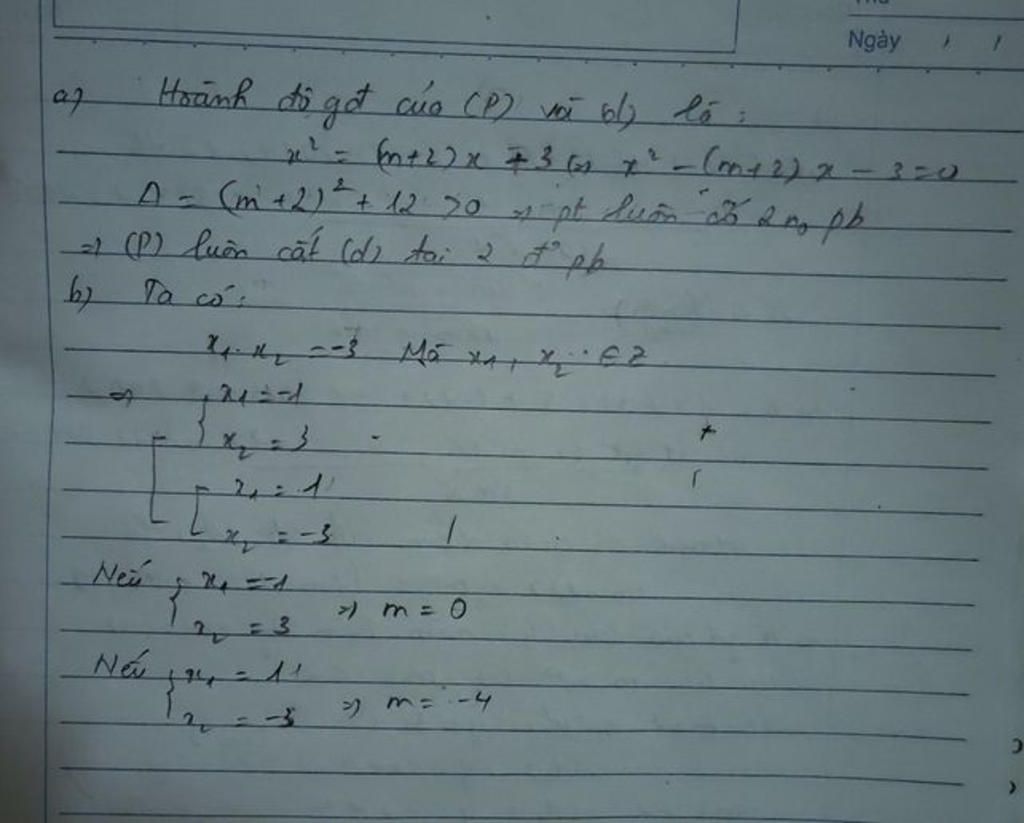 Thứ
Ngày / /
a) Hoành độ gđ của (P) và (d) là:
x² = (m+2)x + 3 (=) x² - (m+2)x - 3 = 0
Δ = (m+2)² + 12 > 0 => pt luôn có 2 no pb
=> (P) luôn cắt (d) tại 2 đ' pb
b) Ta có:
x₁.x₂ = -3 Mà x₁, x₂ ∈ Z
=> x₁ = -1
x₂ = 3
x₁ = 1
x₂ = -3
Nếu { x₁ = -1
x₂ = 3 => m = 0
Nếu { x₁ = 1
x₂ = -3 => m = -4